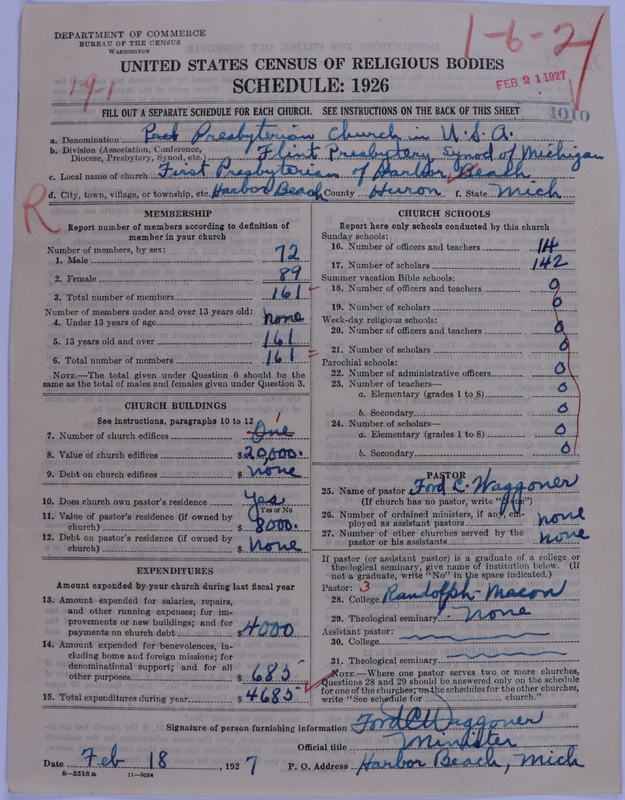 DEPARTMENT OF COMMERCE
BUREAU OF THE CENSUS
WASHINGTON
1-6-2
UNITED STATES CENSUS OF RELIGIOUS BODIES
SCHEDULE: 1926
FEB 21 1927
191
FILL OUT A SEPARATE SCHEDULE FOR EACH CHURCH. SEE INSTRUCTIONS ON THE BACK OF THIS SHEET
4010
a. Denomination Presbyterian Church in U.S.A.
b. Division (Association, Conference, Diocese, Presbytery, Synod, etc.) Flint Presbytery Synod of Michigan
c. Local name of church First Presbyterian of Harbor Beach
d. City, town, village, or township, etc. Harbor Beach County Huron f. State Mich
R
MEMBERSHIP
Report number of members according to definition of
member in your church
Number of members, by sex:
1. Male 72
2. Female 89
3. Total number of members 161
Number of members under and over 13 years old:
4. Under 13 years of age none
5. 13 years old and over 161
6. Total number of members 161
NOTE.—The total given under Question 6 should be the
same as the total of males and females given under Question 3.
CHURCH BUILDINGS
See instructions, paragraphs 10 to 12
7. Number of church edifices One 1
8. Value of church edifices $20,000.
9. Debt on church edifices $ none
10. Does church own pastor's residence Yes
Yes or No
11. Value of pastor's residence (if owned by
church) $ 8000.
12. Debt on pastor's residence (if owned by
church) $ none
EXPENDITURES
Amount expended by your church during last fiscal year
13. Amount expended for salaries, repairs,
and other running expenses; for im-
provements or new buildings; and for
payments on church debt $ 4000
14. Amount expended for benevolences, in-
cluding home and foreign missions; for
denominational support; and for all
other purposes $ 685
15. Total expenditures during year $ 4685
CHURCH SCHOOLS
Report here only schools conducted by this church
Sunday schools:
16. Number of officers and teachers 14
17. Number of scholars 142
Summer vacation Bible schools:
18. Number of officers and teachers 0
19. Number of scholars 0
Week-day religious schools:
20. Number of officers and teachers 0
21. Number of scholars 0
Parochial schools:
22. Number of administrative officers 0
23. Number of teachers—
a. Elementary (grades 1 to 8) 0
b. Secondary 0
24. Number of scholars—
a. Elementary (grades 1 to 8) 0
b. Secondary 0
PASTOR
25. Name of pastor Ford C. Waggoner
(If church has no pastor, write "None")
26. Number of ordained ministers, if any, em-
ployed as assistant pastors none
27. Number of other churches served by the
pastor or his assistants none
If pastor (or assistant pastor) is a graduate of a college or
theological seminary, give name of institution below. (If
not a graduate, write "No" in the space indicated.)
Pastor: 3
28. College Randolph-Macon
29. Theological seminary none
Assistant pastor:
30. College
31. Theological seminary
NOTE.—Where one pastor serves two or more churches,
Questions 28 and 29 should be answered only on the schedule
for one of the churches; on the schedules for the other churches,
write "See schedule for ........ church."
Signature of person furnishing information Ford C Waggoner
Official title Minister
Date Feb 18, 1927 P. O. Address Harbor Beach, Mich
8—5518a 11—9054